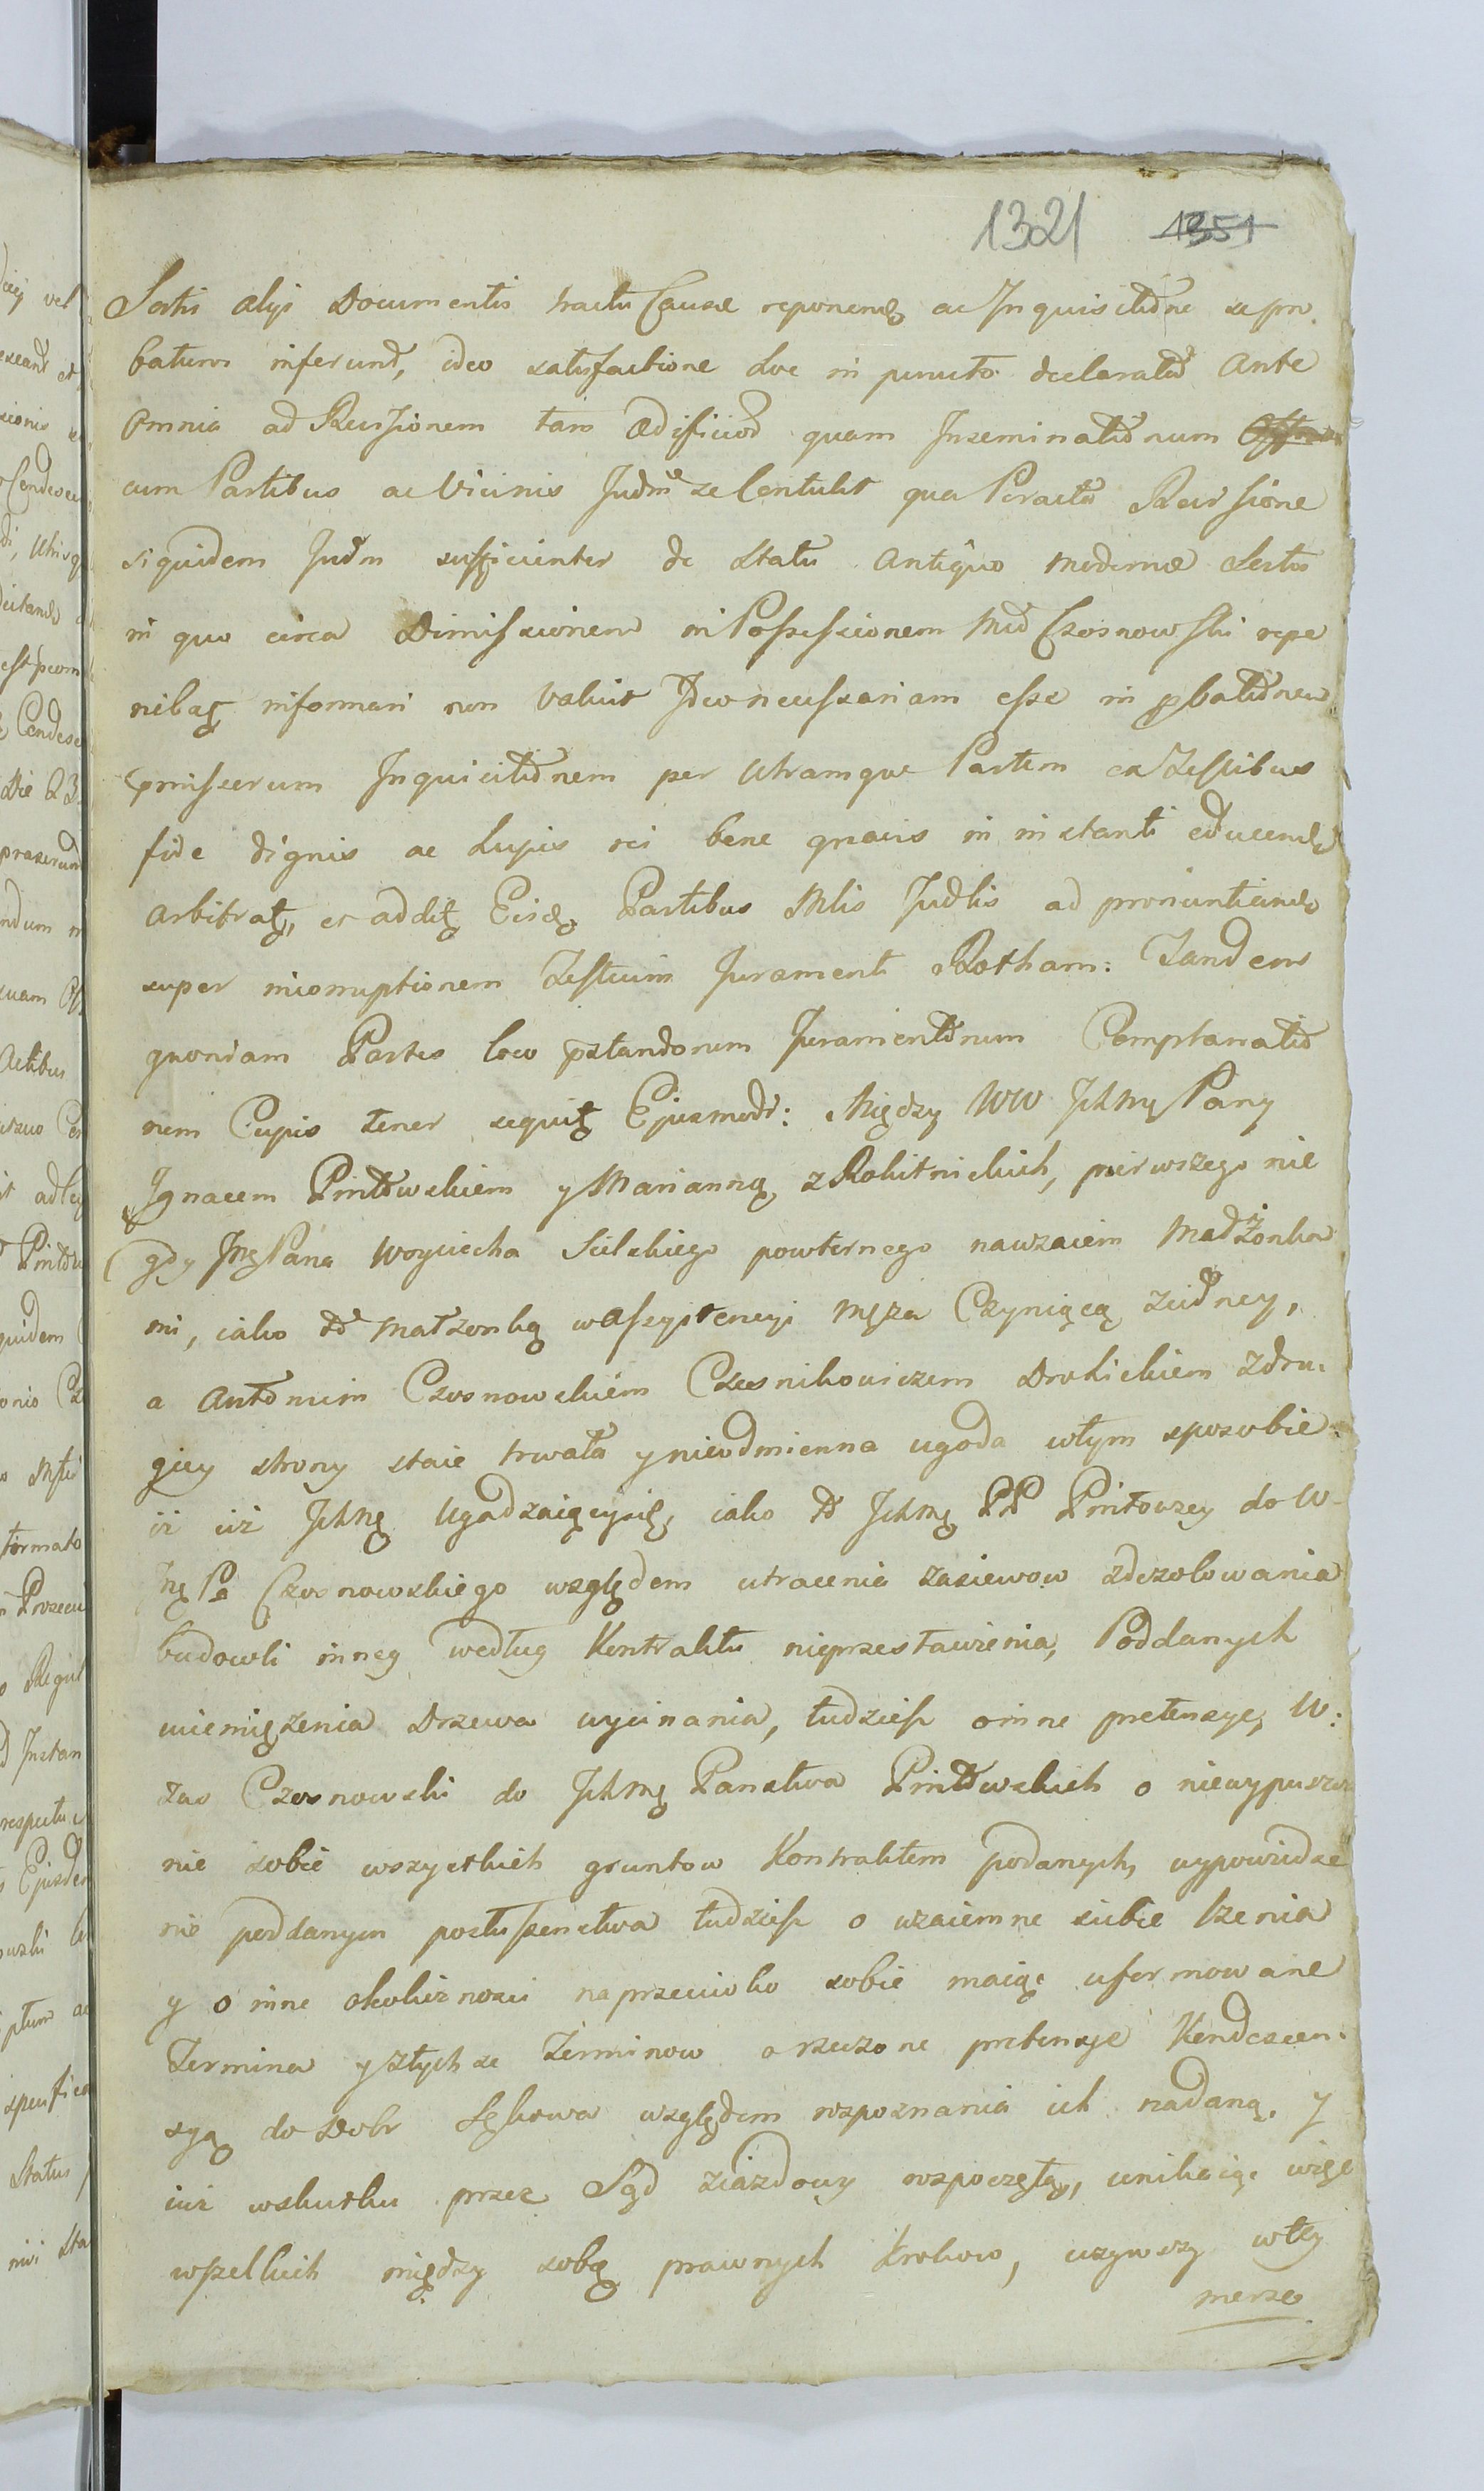 1321 1351
Satis alijs Documentis tractu Causæ reponend ac Inquisitione se pro
baturos inferunt, ideo satisfactione suæ in puncto declaratio Ante
Omnia ad Revisionem tam Ædificior quam Inseminationum
cum Partibus ac Vicinis Judm se Contulit qua Peracta Revisione
siquidem Judm sufficienter de Statu Antiquo moderna Sortis
in quo circa Dimissionem in Possessionem Mfd Czosnowski repe
riebat informari non valuit Ideo necessariam esse in probationem
pmissorum Inquisitionem per Utramque Partem ex Testibus
fide dignis ac hujus rei bene gnaris in instanti educend
arbitrat, et addit Eisd Partibus Mlis Judlis ad pronuntiand
super incorruptionem Testium Juramenti Rotham: Tandem
quoniam Partes loco pstandorum Juramentorum Complanatio
nem Cujus tenor sequit Ejusmodi: Między WW Jchmę Pany
Ignacem Pintowskiem y Marianną z Rokitnickich, pierwszego nie
gdy Jmę Pana Woyciecha Sielskiego powtornego nawzaiem Madżonka
mi, iako też Małżonką w assystencyi męża Czyniącą zjedney,
a Antonim Czosnowskiem Czesnikowiczem Drohickiem zdru-
giey strony staie trwała y nieodmienna ugoda wtym sposobie
iż iuż Jchmę Ugadzaiącysię, iako to Jchmę PP Pintowscy do W
Jmę Pa Czosnowskiego względem utracenia zasiewow zdezolowania
budowli inney według Kontraktu nieprzestawienia, Poddanych
uciemiężenia Drzewa wycinania, tudzież o inne pretensye, W:
zas Czosnowski do Jchmę Panstwa Pintowskich o niewypuszcze
nie sobie wszystkich gruntow Kontraktem podanych, wypowiedze
nie poddanym posłuszenstwa tudzież o wzaiemne siebie lżenia
y o inne okoliczności naprzeciwko sobie maiąc uformowane
Termina y z tychże Terminow o rzeczone pretensye Kondescen-
syą do Dobr Sękowa względem rozpoznania ich nadaną, y
iuż wskutku przez Sąd ziazdowy rozpoczętą, unikaiąc więc
wszelkich między sobą prawnych Krokow, uzywszy w tey
mierze